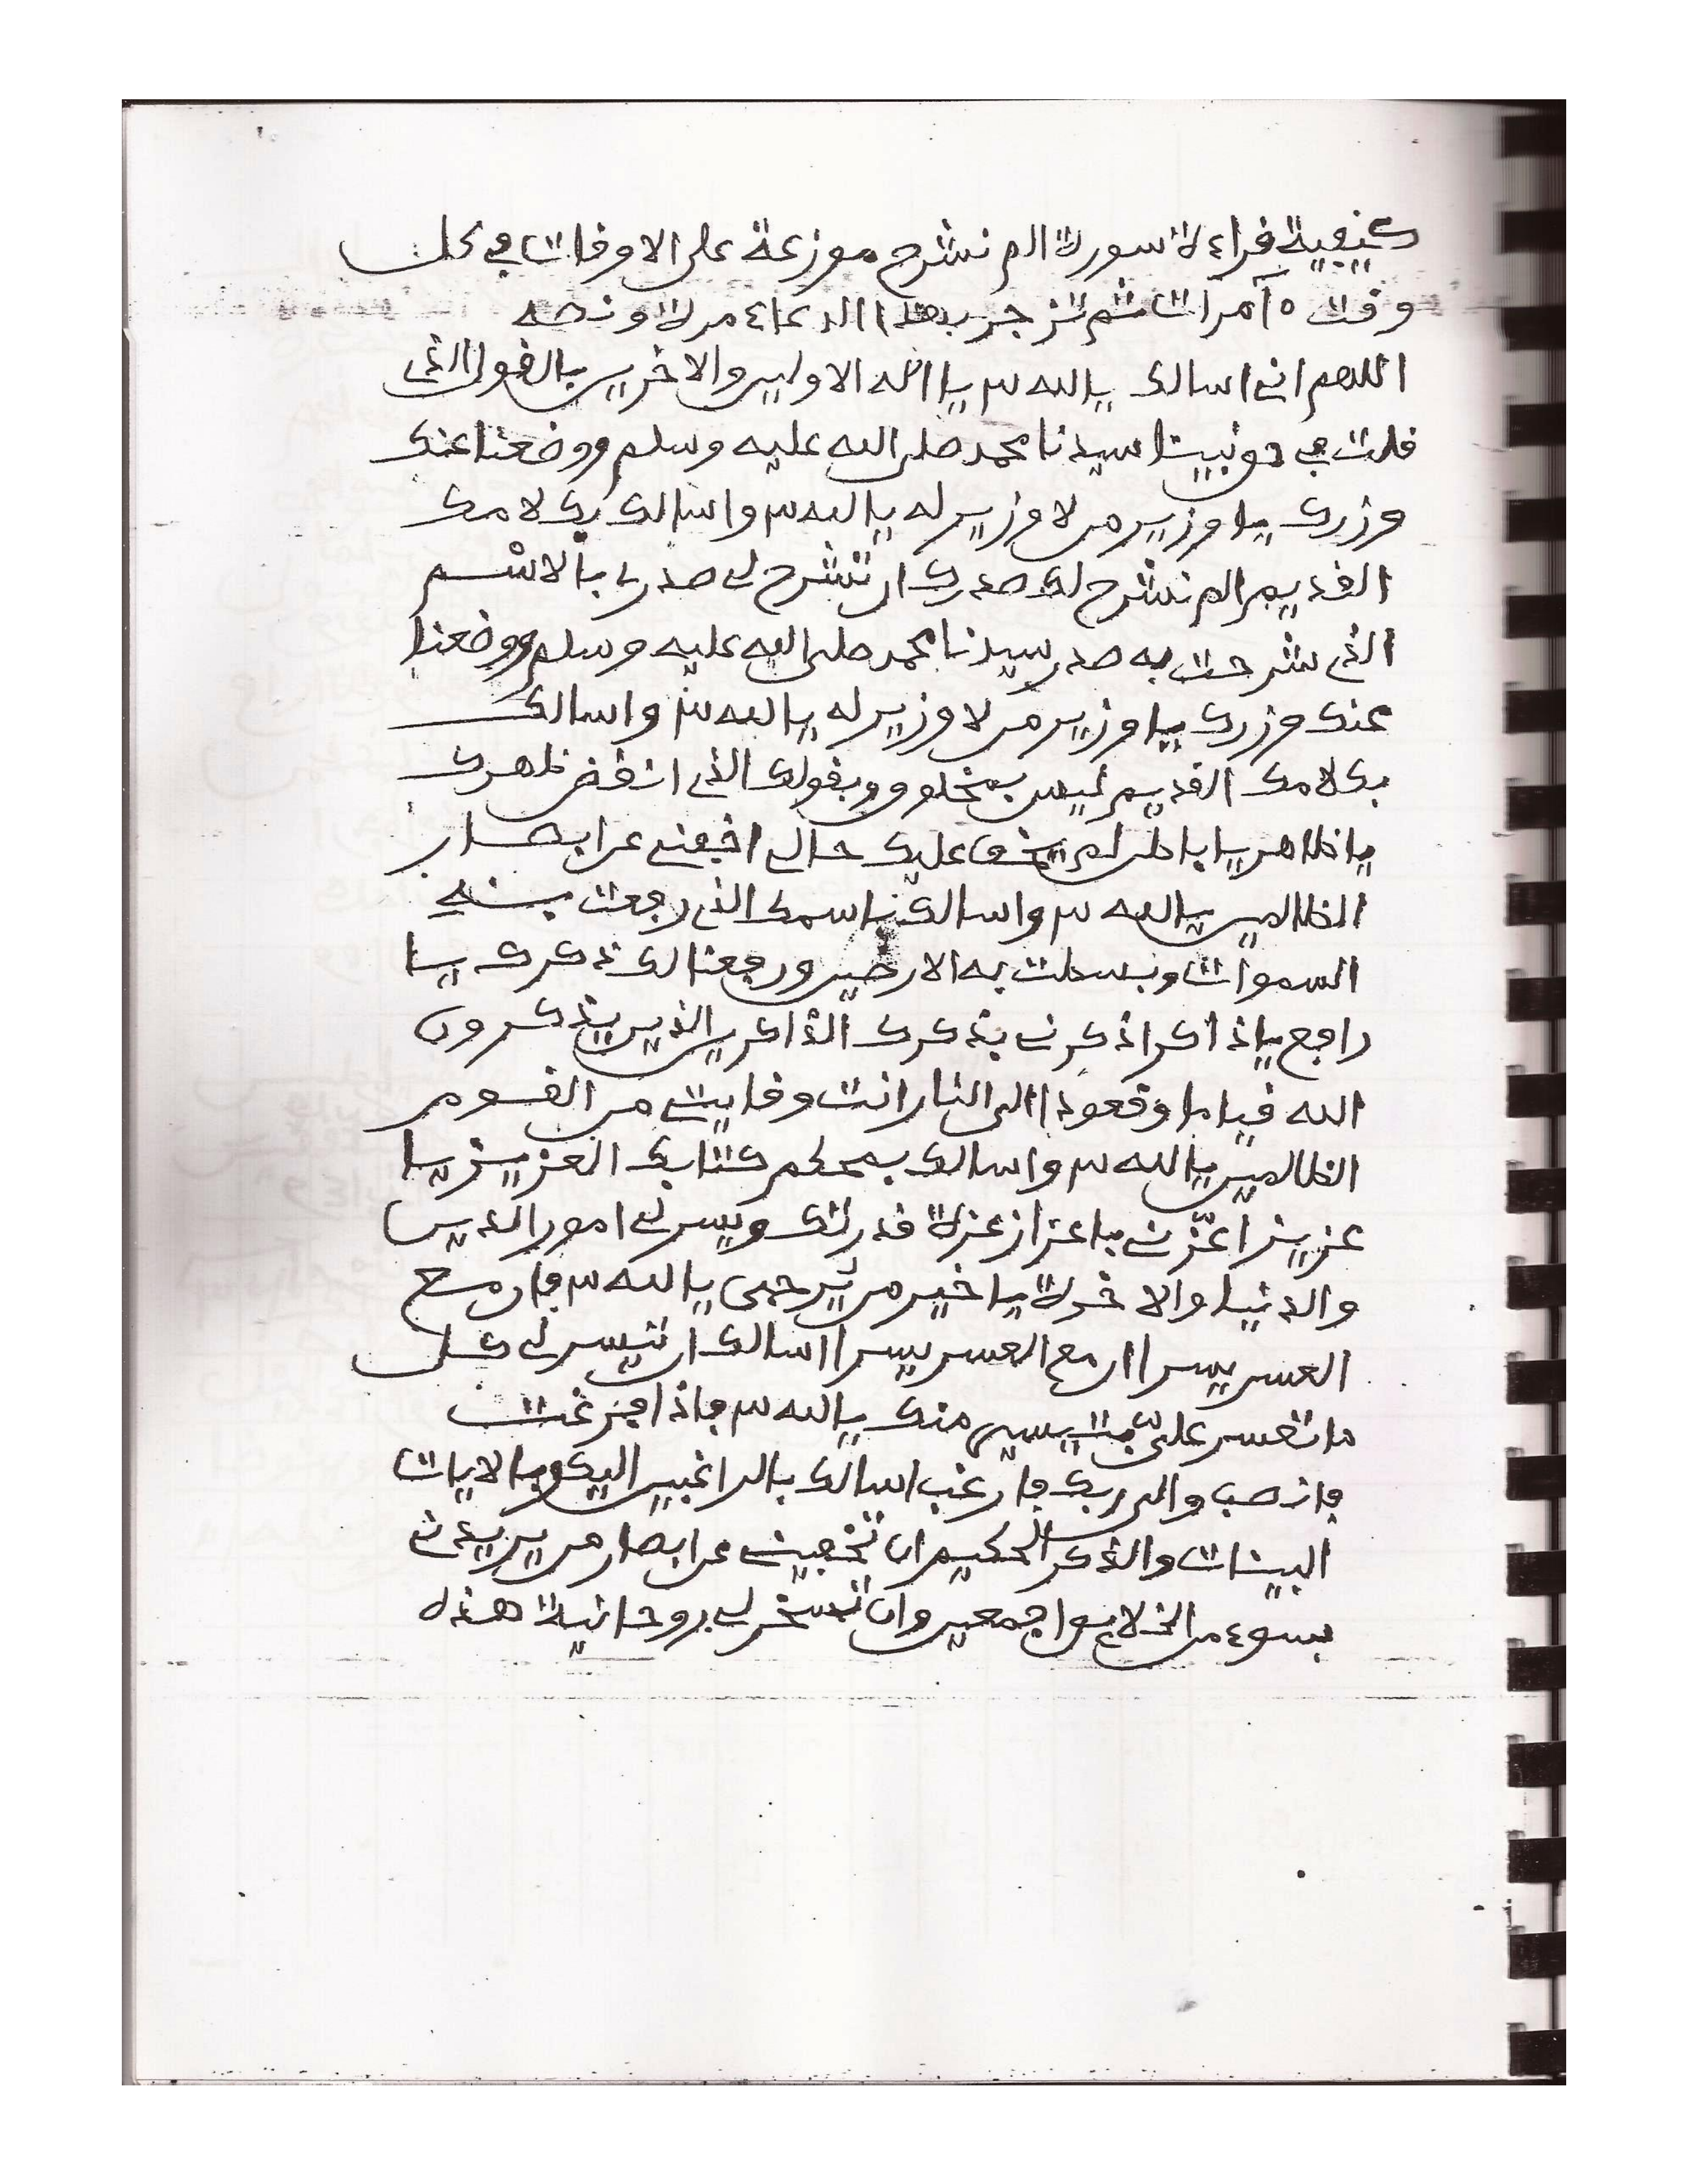 كيفية قراءة سورة الم نشرح موزعة على الاوقات في كل
وقت ١٥ مرات ثم تزجر بهذا الدعاء مرة ونصه
اللهم اني اسالك يا الله ٣ يا اله الاولين والاخرين بالقول الذي
قلت في حق نبينا سيدنا محمد صلى الله عليه وسلم ووضعنا عنك
وزرك يا وزير من لا وزير له يا الله ٣ واسالك بكلامك
القديم الم نشرح لك صدرك ان تشرح لي صدري بالاسم
الذي شرحت به صدر سيدنا محمد صلى الله عليه وسلم ووضعنا
عنك وزرك يا وزير من لا وزير له يا الله ٣ واسالك
بكلامك القديم ليس بمخلوق وبقولك الذي انقض ظهرك
يا ظاهر يا باطن لم يخف عليك حالي اخفني عن ابصار
الظالمين يا الله ٣ واسالك باسمك الذي رفعت به
السموات وبسطت به الارضين ورفعنا لك ذكرك يا
رافع يا ذاكر اذكرني بذكرك الذاكرين الذين يذكرون
الله قياما وقعودا الى النار انت وقايتي من القوم
الظالمين يا الله ٣ واسالك بمحكم كتابك العزيز يا
عزيز اعزني باعزاز عزة قدرتك ويسر لي امور الدين
والدنيا والاخرة يا خير من يرجى يا الله ٣ فان مع
العسر يسرا ان مع العسر يسرا اسالك ان تيسر لي كل
ما تعسر علي بتيسير منك يا الله ٣ فاذا فرغت
فانصب والى ربك فارغب اسالك بالراغبين اليك وبالايات
البينات والذكر الحكيم ان تخفيني عن ابصار من يريدني
بسوء من الخلايق اجمعين وان تسخر لي روحانية هذه